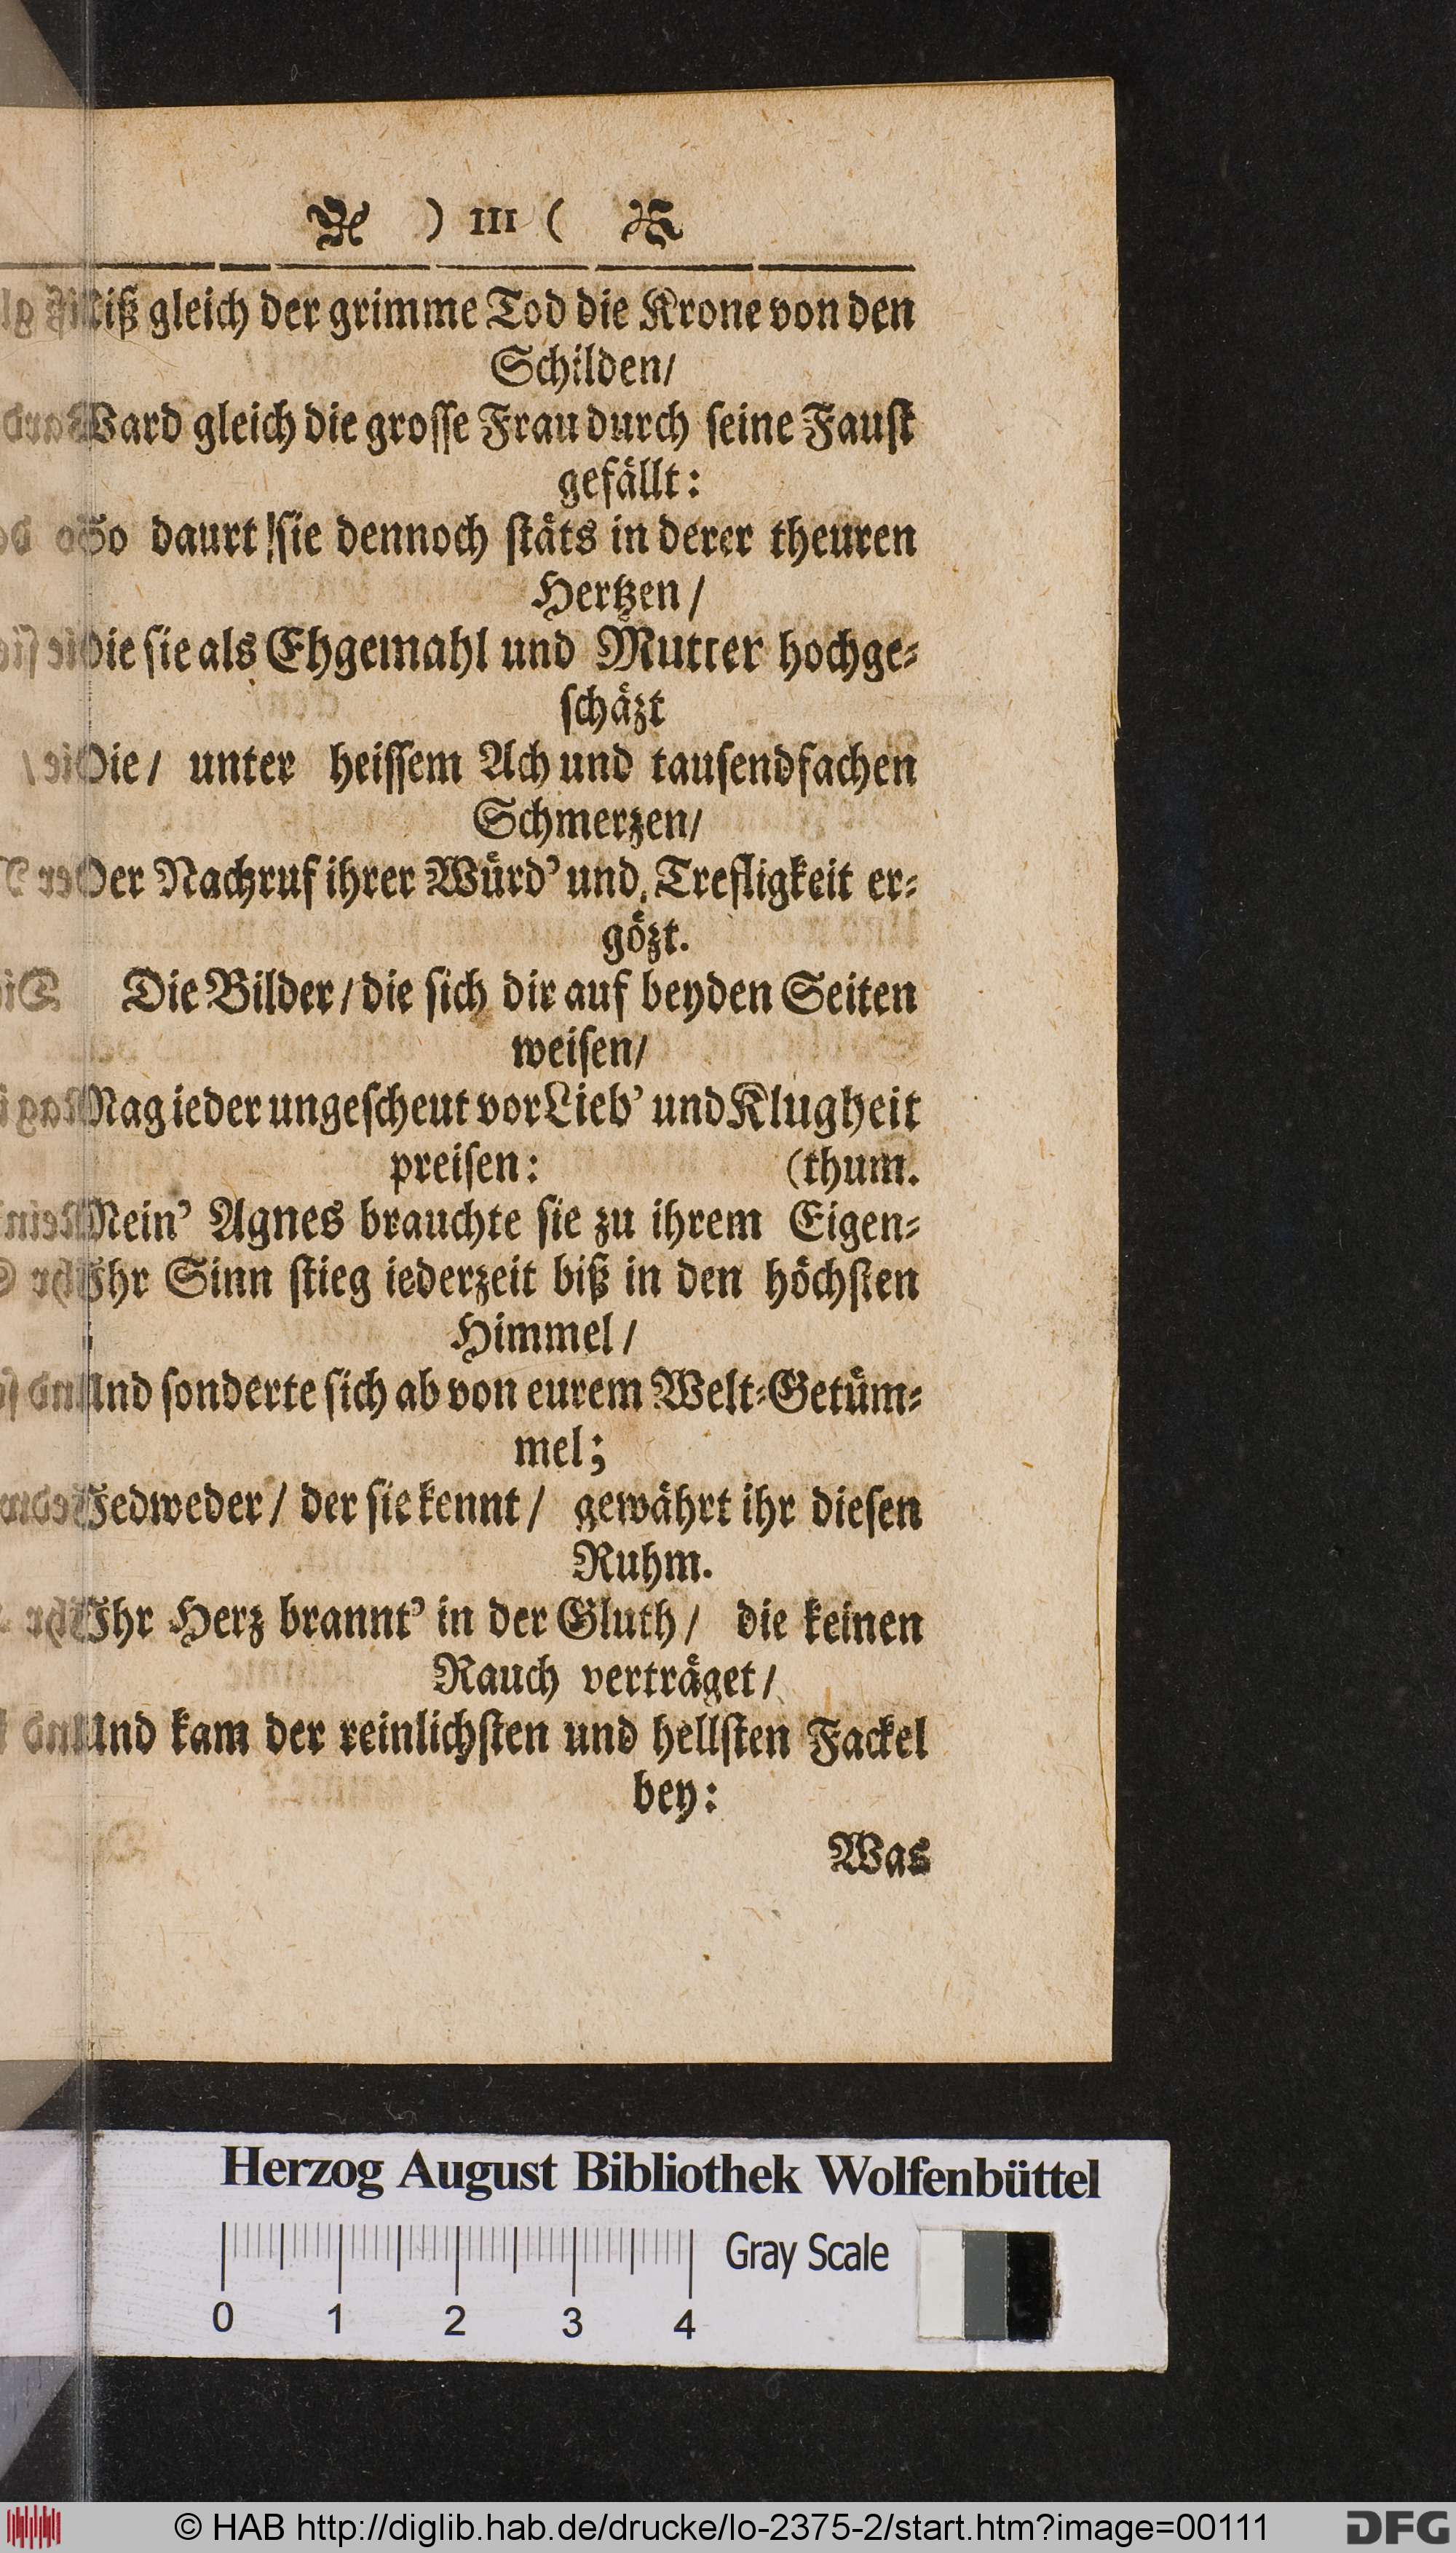 ) 111 (
Riß gleich der grimme Tod die Krone von den
Schilden/
Ward gleich die grosse Frau durch seine Faust
gefällt:
So daurt sie dennoch stäts in derer theuren
Hertzen /
Die sie als Ehgemahl und Mutter hochge-
schäzt
Die / unter heissem Ach und tausendfachen
Schmerzen/
Der Nachruf ihrer Würd' und Trefligkeit er-
gözt.
Die Bilder / die sich dir auf beyden Seiten
weisen/
Mag ieder ungescheut vor Lieb' und Klugheit
preisen: (thum.
Mein' Agnes brauchte sie zu ihrem Eigen-
Ihr Sinn stieg iederzeit biß in den höchsten
Himmel /
Und sonderte sich ab von eurem Welt-Getüm-
mel;
Jedweder / der sie kennt / gewährt ihr diesen
Ruhm.
Ihr Herz brannt' in der Gluth / die keinen
Rauch verträget /
Und kam der reinlichsten und hellsten Fackel
bey:
Was
Herzog August Bibliothek Wolfenbüttel
Gray Scale
0 1 2 3 4
© HAB http://diglib.hab.de/drucke/lo-2375-2/start.htm?image=00111
DFG